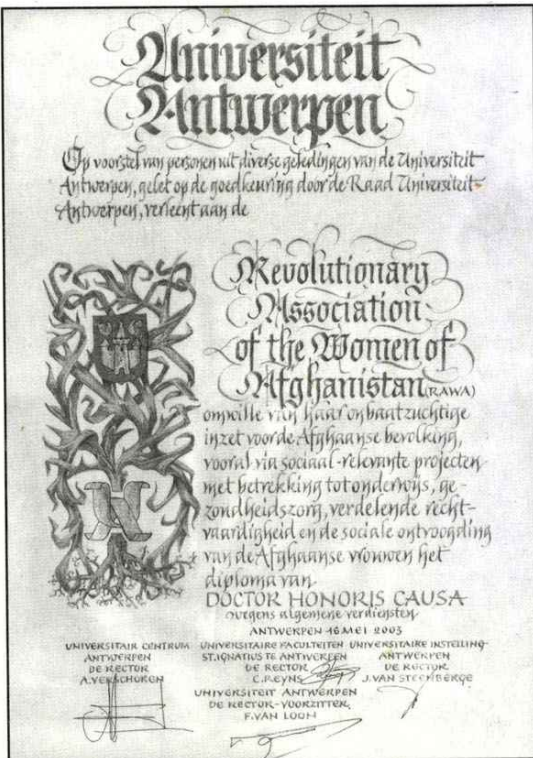 Universiteit
Antwerpen
Op voorstel van personen uit diverse geledingen van de Universiteit
Antwerpen, gelet op de goedkeuring door de Raad Universiteit
Antwerpen, verleent aan de
Revolutionary
Association
of the Women of
Afghanistan (RAWA)
omwille van haar onbaatzuchtige
inzet voor de Afghaanse bevolking,
vooral via sociaal-relevante projecten
met betrekking tot onderwijs, ge-
zondheidszorg, verdelende recht-
vaardigheid en de sociale ontvoogding
van de Afghaanse vrouwen het
diploma van
DOCTOR HONORIS CAUSA
wegens algemene verdiensten
ANTWERPEN 16 MEI 2003
UNIVERSITAIR CENTRUM UNIVERSITAIRE FACULTEITEN UNIVERSITAIRE INSTELLING
ANTWERPEN ST. IGNATIUS TE ANTWERPEN ANTWERPEN
DE RECTOR DE RECTOR DE RECTOR
A. VERSCHOREN C. REYNS J. VAN STEENBERGE
UNIVERSITEIT ANTWERPEN
DE RECTOR-VOORZITTER,
F. VAN LOON